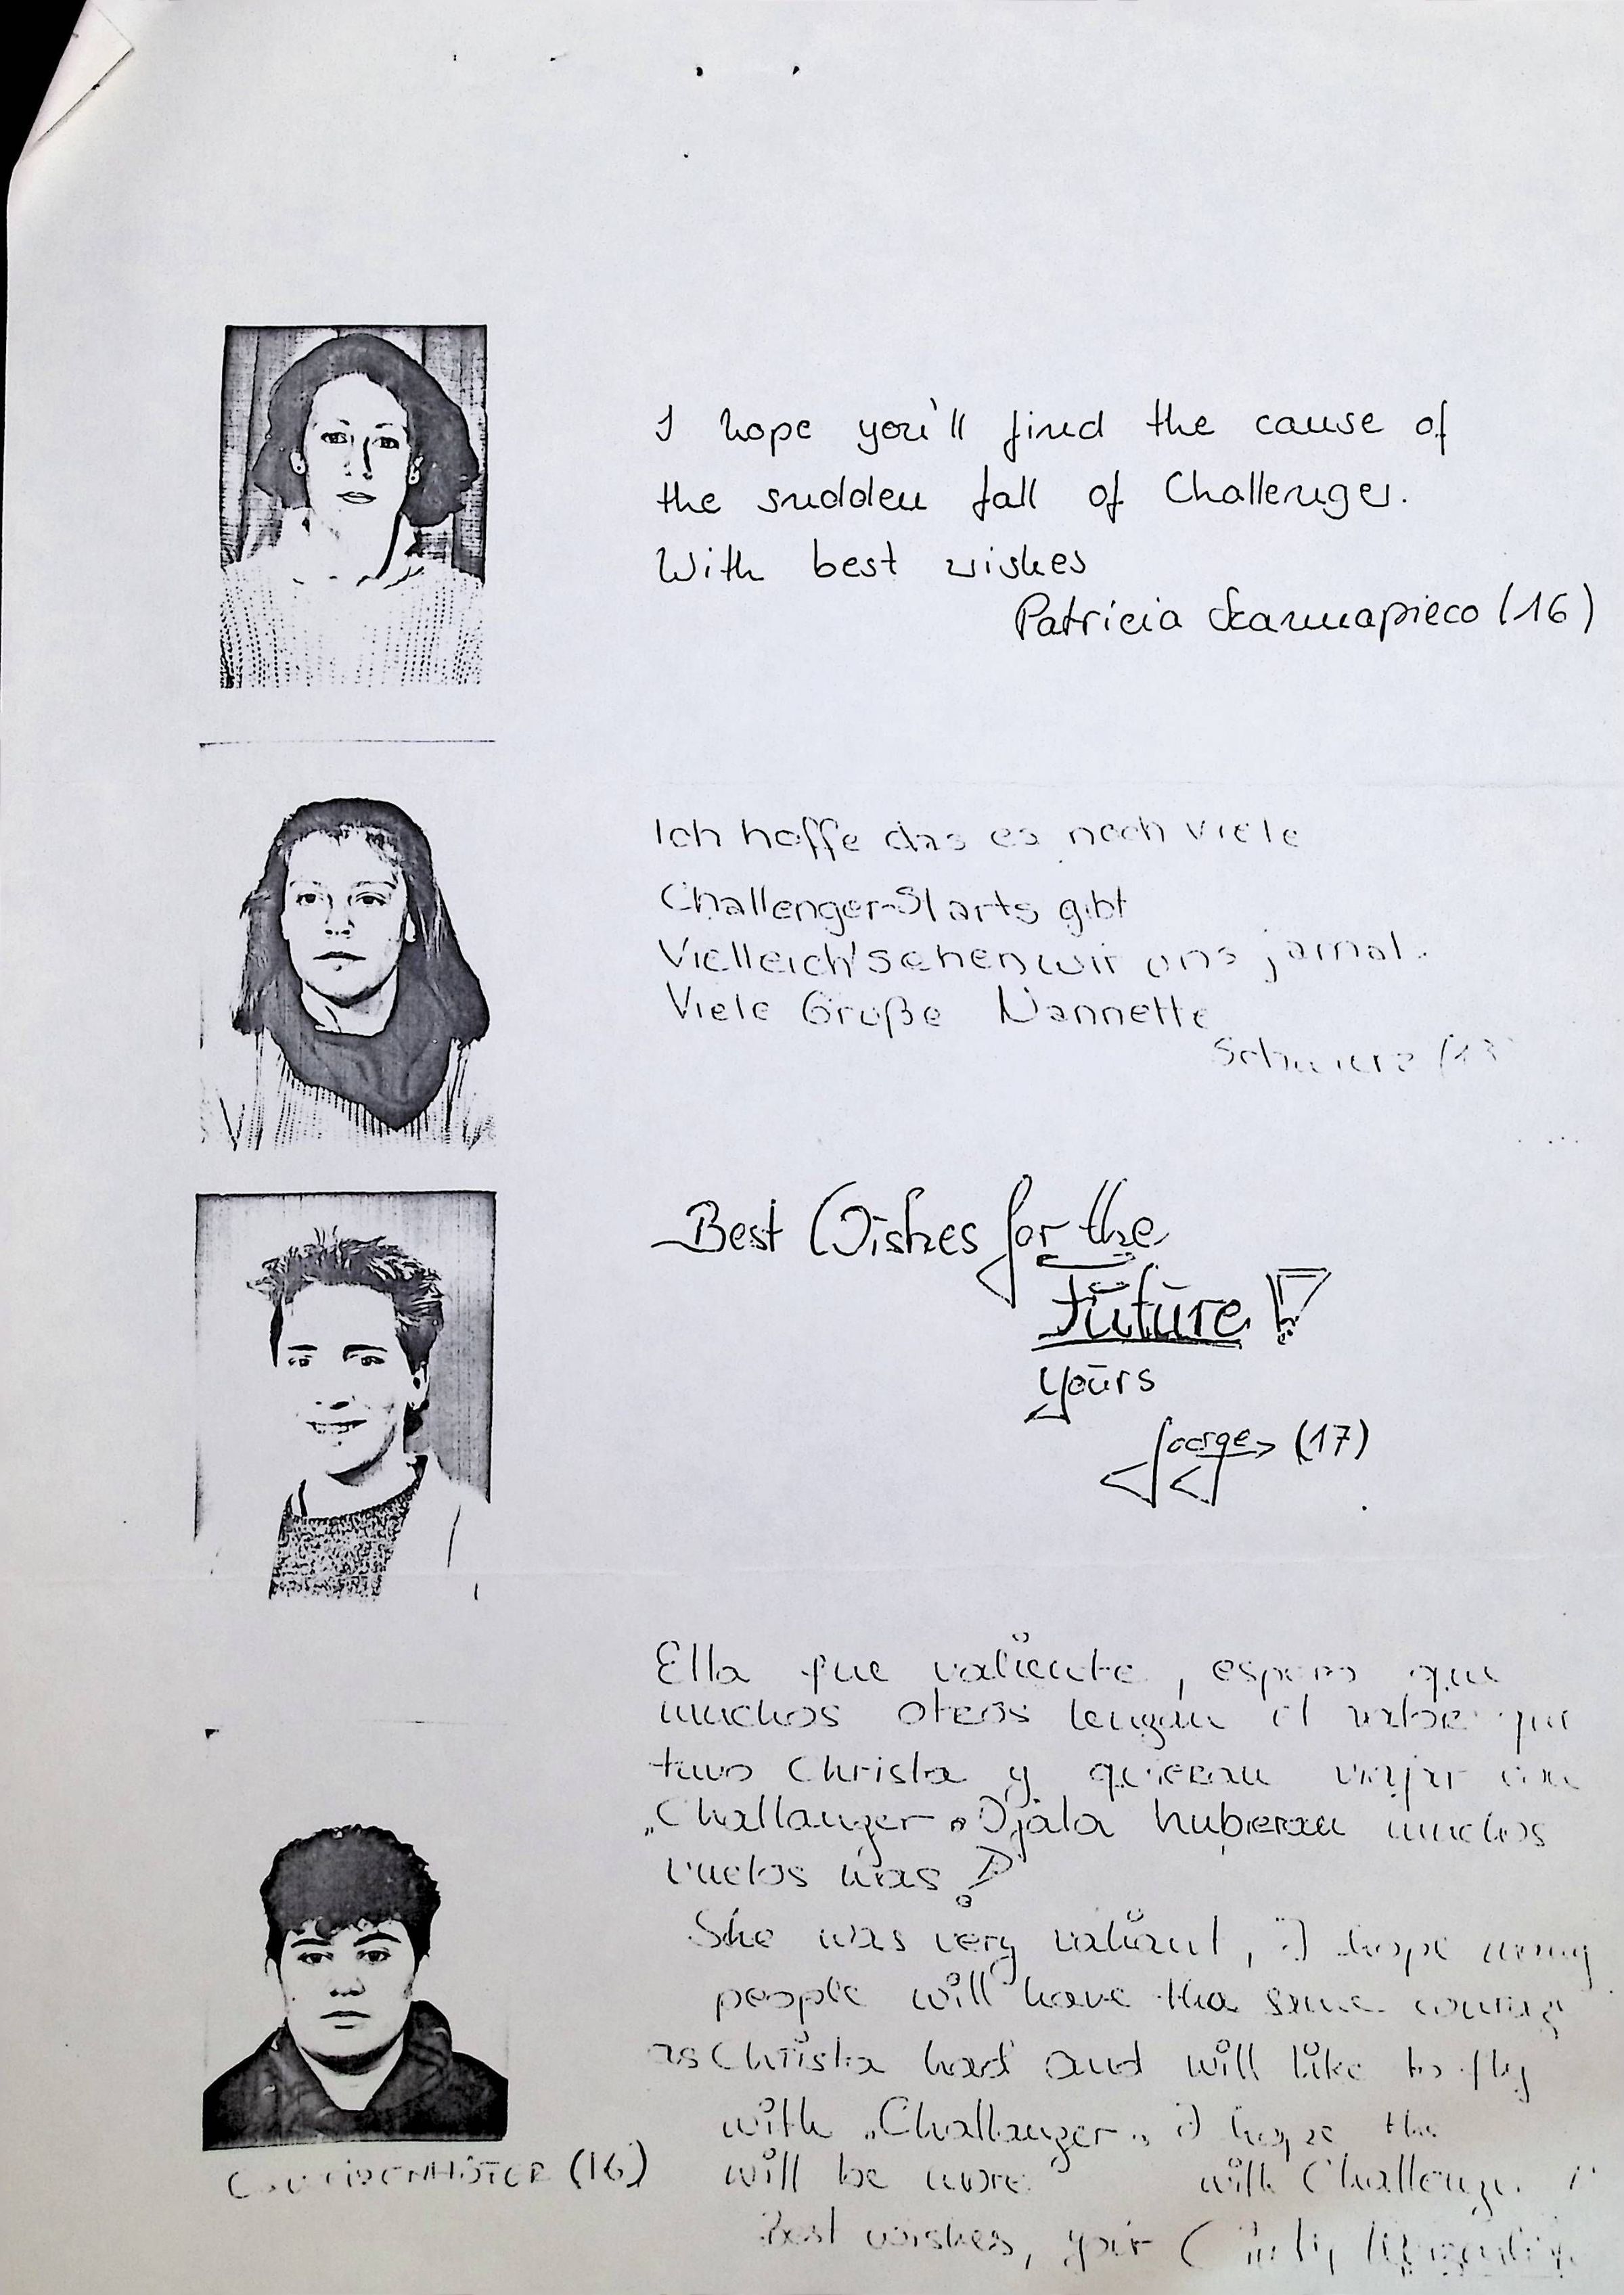 I hope you'll find the cause of
the sudden fall of Challenger.
With best wishes
Patricia Scannapieco (16)
Ich hoffe das es noch viele
Challenger-Starts gibt
Vielleich' sehen wir uns jamal.
Viele Grüße Nannette
Best Wishes for the
Future!
yours
George (17)
Ella fue valiente, espero que
muchos otros tengan el valor que
tuvo Christa y quieran viajar con
„Challanger" Ojala hubieran muchos
vuelos mas!
She was very valiant, I hope many
people will have the same courage
as Christa had and will like to fly
with „Challanger" I hope the
will be more with Challenger
(16)
Best wishes, your